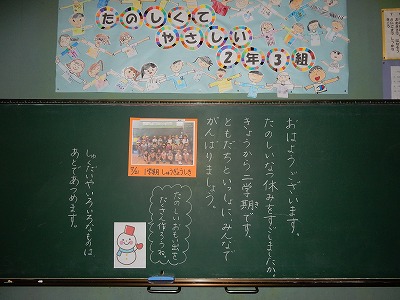 たのしくて
やさしい
2年3組
おはようございます。
たのしいなつ休みをすごしましたか。
きょうから二学期です。
ともだちといっしょに、みんなで
がんばりましょう。
1学期 しゅうぎょうしき
たのしいおもい出を
たくさん作ろうね。
しゅくだいやいろいろなものは
あとであつめます。